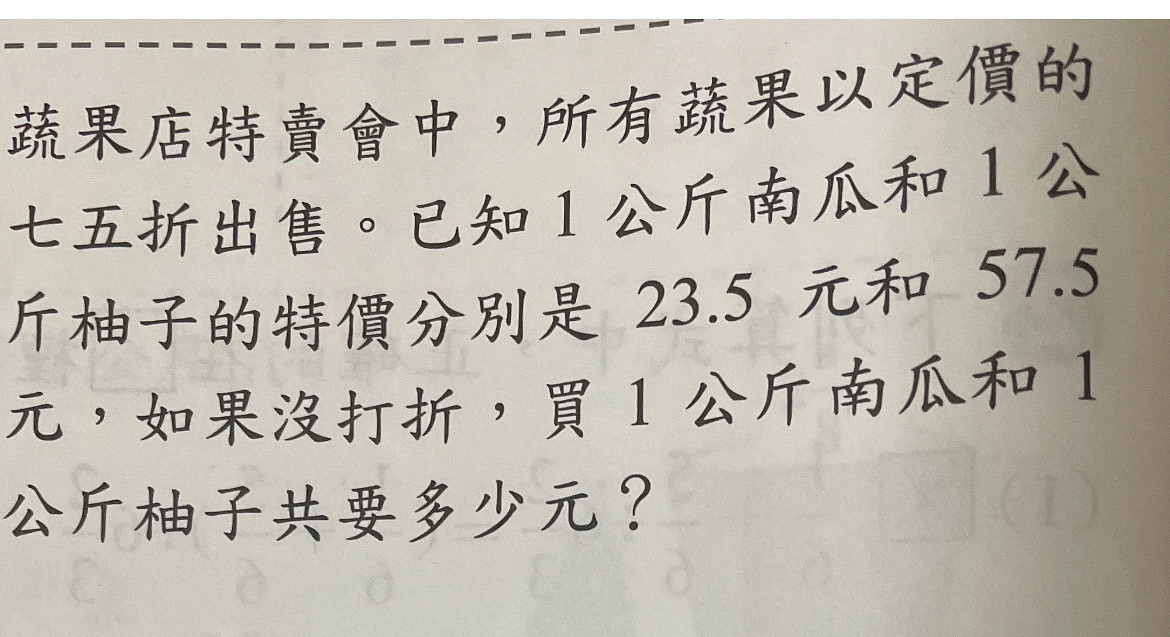 蔬果店特賣會中，所有蔬果以定價的
七五折出售。已知1公斤南瓜和1公
斤柚子的特價分別是 23.5 元和 57.5
元，如果沒打折，買1公斤南瓜和1
公斤柚子共要多少元？